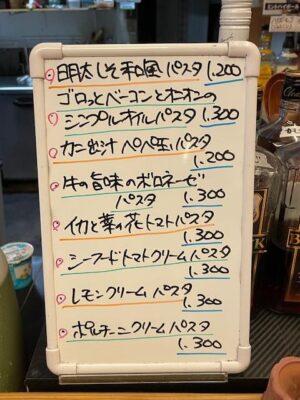 明太しそ和風パスタ 1,200
ゴロっとベーコンとオニオンの
シンプルオイルパスタ 1,300
カニ出汁ペペ玉パスタ
1,200
牛の旨味のボロネーゼ
パスタ 1,300
イカと菜の花トマトパスタ
1,300
シーフードトマトクリームパスタ
1,300
レモンクリームパスタ
1,300
ポルチーニクリームパスタ
1,300